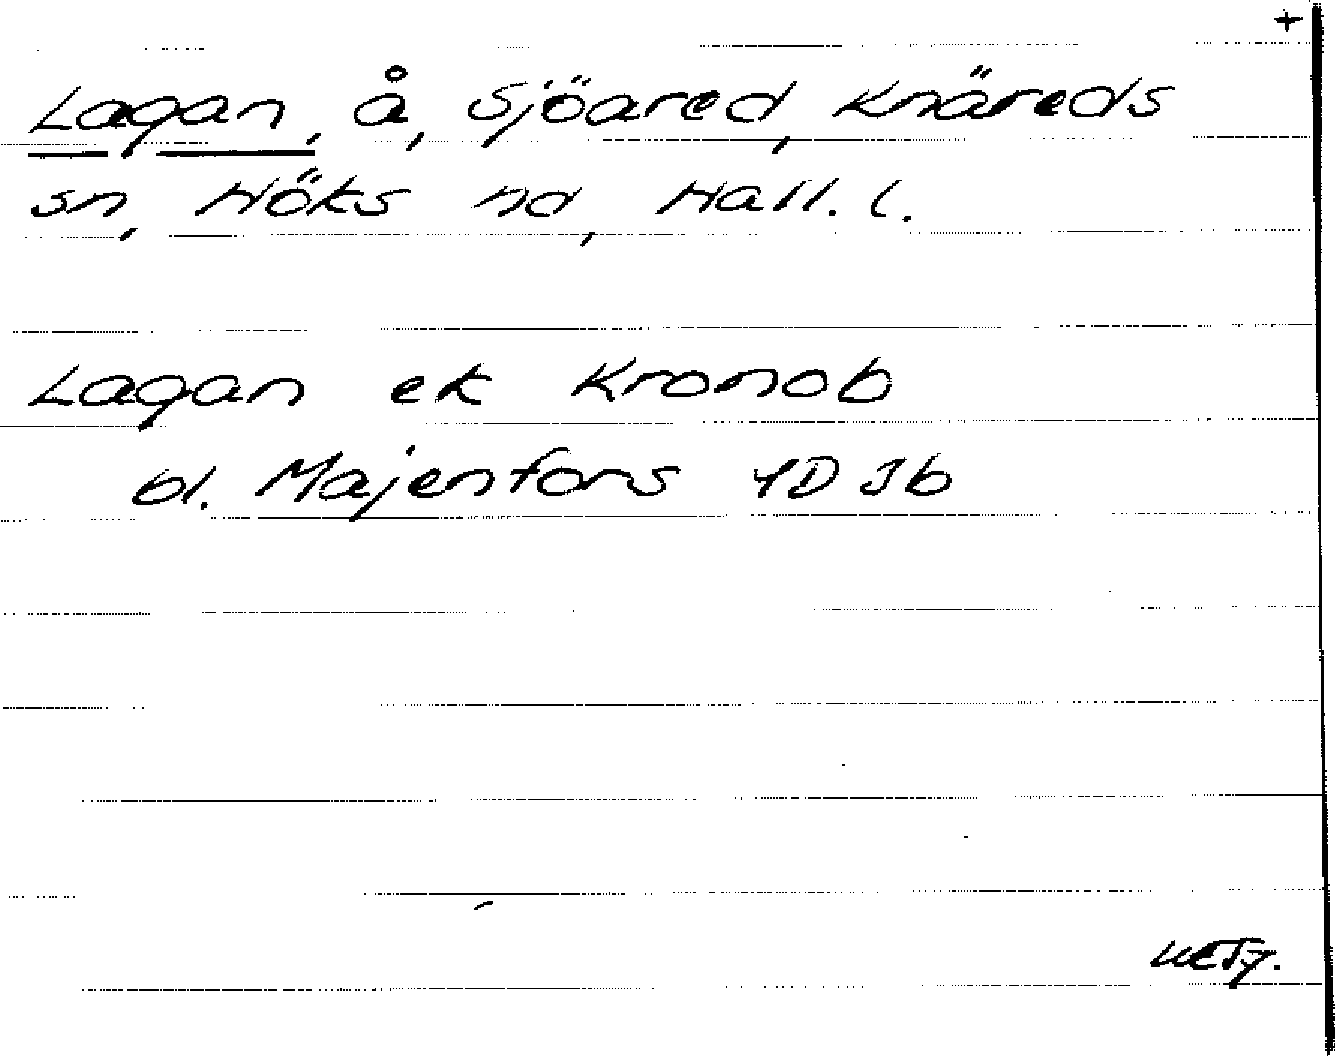 +
Lagan, å, Sjöared, Knäreds
sn, Höks hd, Hall. l.
Lagan ek Kronob
bl. Majenfors 4D 3b